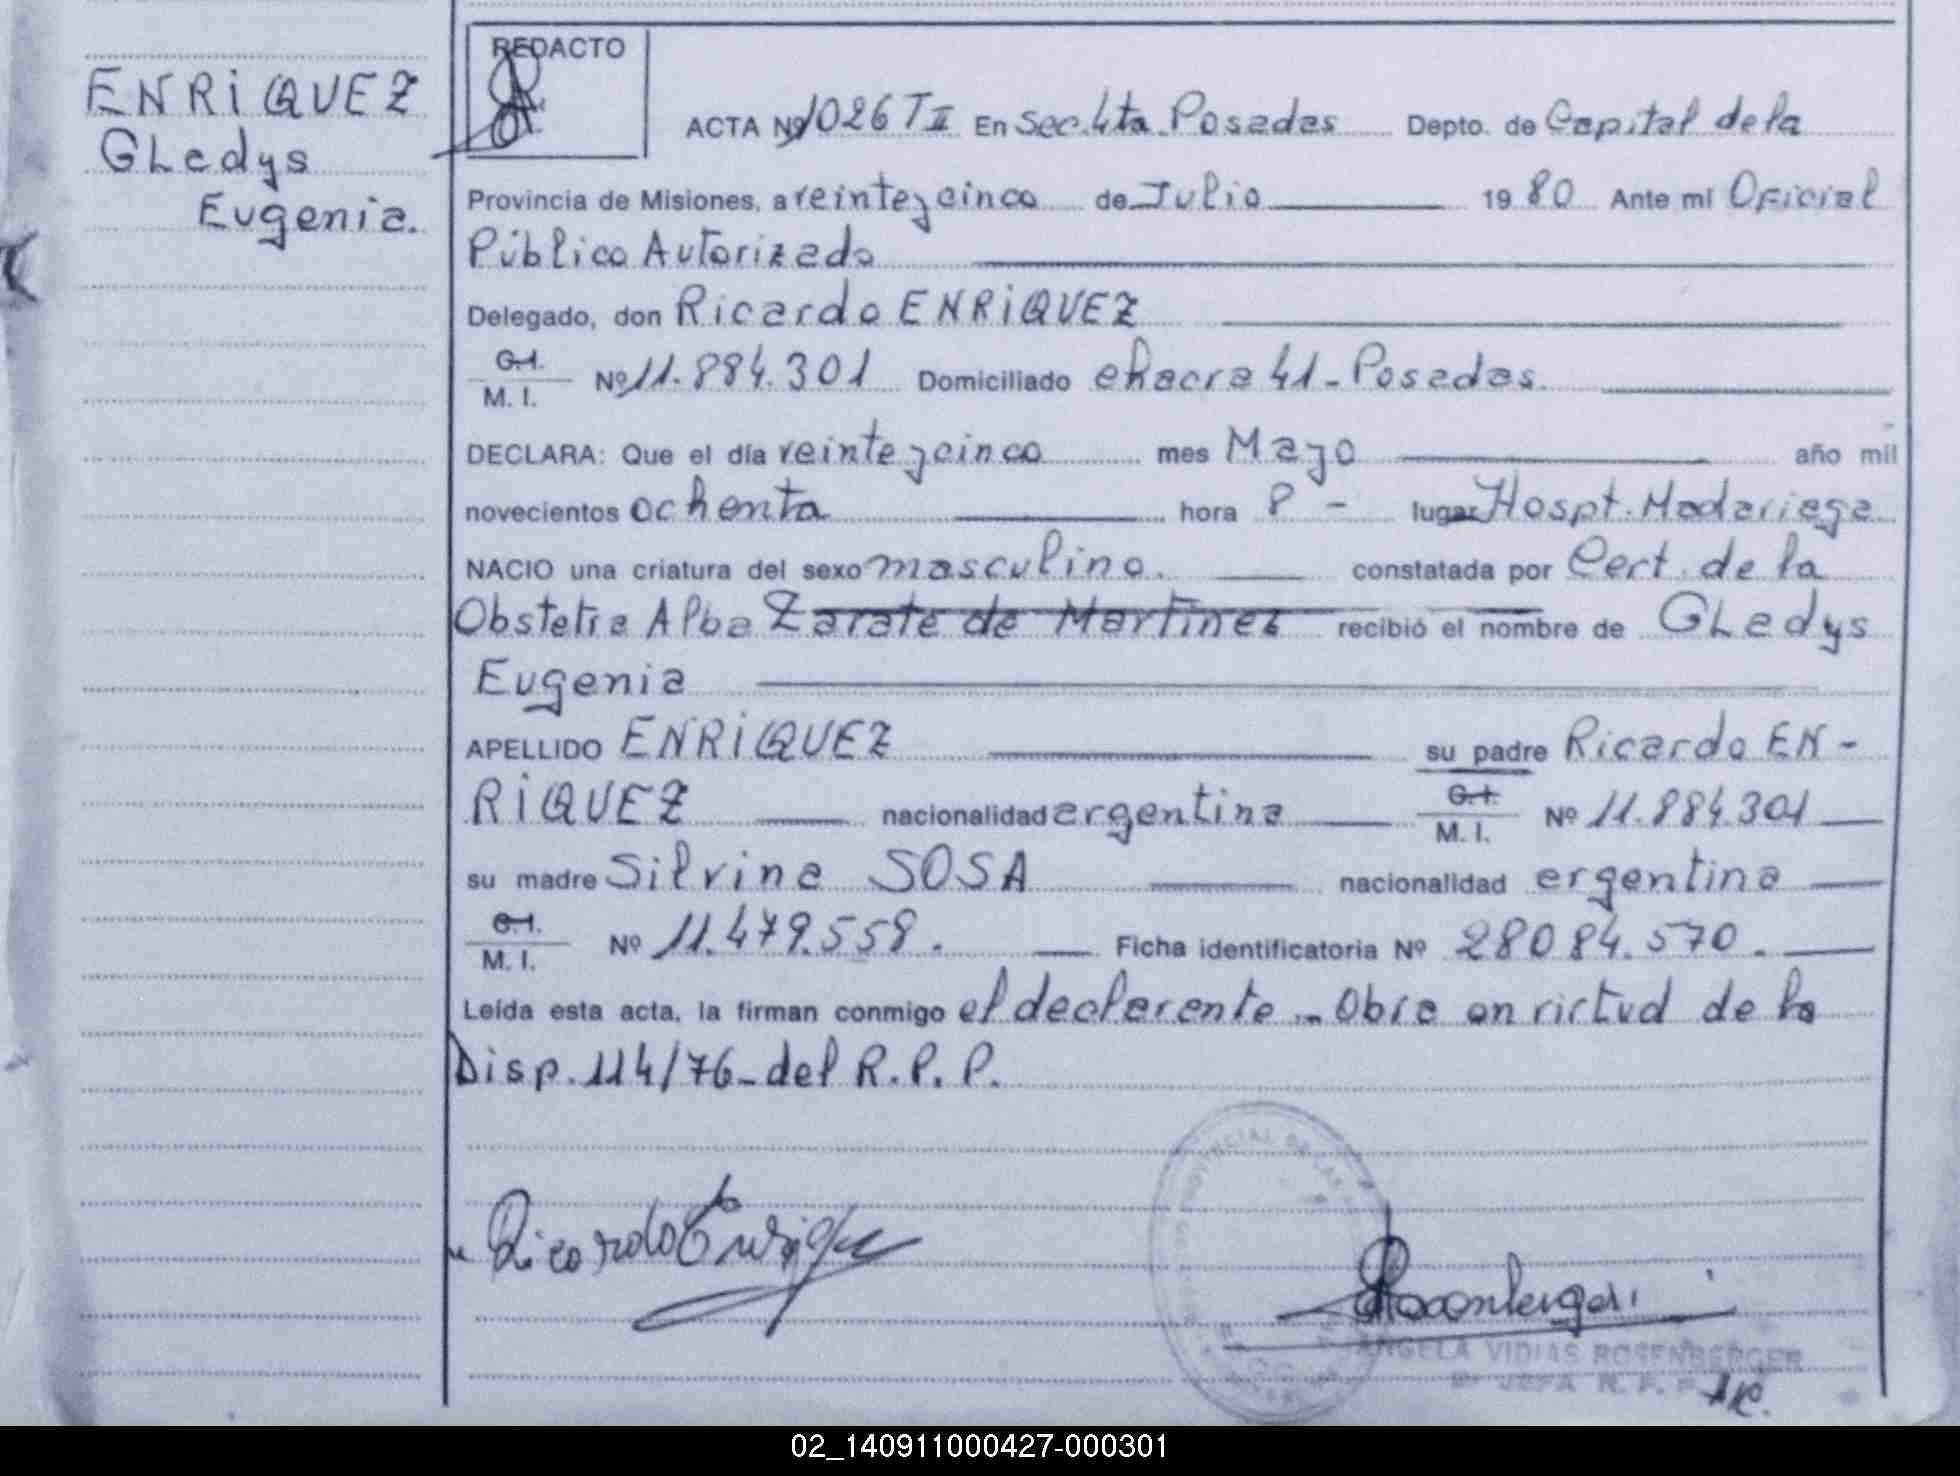 ENRIQUEZ
GLadys
Eugenia.
REDACTO
ACTA Nº 1026 T II En Sec. 4ta. Posadas Depto. de Capital de la
Provincia de Misiones, a veinteycinco de Julio 19 80 Ante mi Oficial
Público Autorizado
Delegado, don Ricardo ENRIQUEZ
C.I.
M. I. Nº 11.884.301 Domiciliado chacra 41 - Posadas.
DECLARA: Que el día veinteycinco mes Mayo año mil
novecientos ochenta hora 8 - lugar Hospt. Madariaga
NACIO una criatura del sexo masculino. constatada por Cert. de la
Obstetra Alba Zarate de Martinez recibió el nombre de GLadys
Eugenia
APELLIDO ENRIQUEZ su padre Ricardo EN-
RIQUEZ nacionalidad argentina C.I. M. I. Nº 11.884.301
su madre Silvina SOSA nacionalidad argentina
C.I.
M. I. Nº 11.479.558. Ficha identificatoria Nº 28084.570.
Leída esta acta, la firman conmigo el declarante - Obra en virtud de la
Disp. 114/76 - del R.P.P.
Ricardo Enrique
ANGELA VIDIAS ROSENBERGER
JEFA R. P. P.
02_140911000427-000301